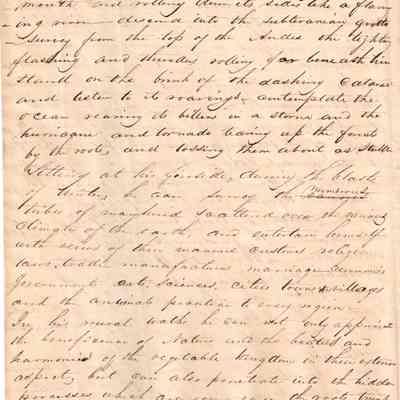 mouth and rolling down its sides like a flam
-ing river - descend into the subteranean grotto
- survey from the top of the Andes the lightn
flashing and thunders rolling far beneath him
stand on the brink of the dashing Catarac
and listen to its roarings - contemplate the
ocean rearing its billows in a storm and the
hurricane and tornado tearing up the forest
by the roots, and tossing them about as stubble
Sitting at his fireside, during the blasts
of Winter, he can survey the numerous
tribes of mankind scattered over the various
Climates of the earth, and entertain himself
with views of their manners customs religion
laws, trades manufactures marriage ceremonies
Governments arts, sciences, cities towns & villages
and the animals peculiar to every region.
In his rural walks he can not only appreciate
the beneficence of Nature and the beauties and
harmonies of the vegetable kingdom in their external
aspect, but can also penetrate into the hidden
processes which are going on in the roots, trunk